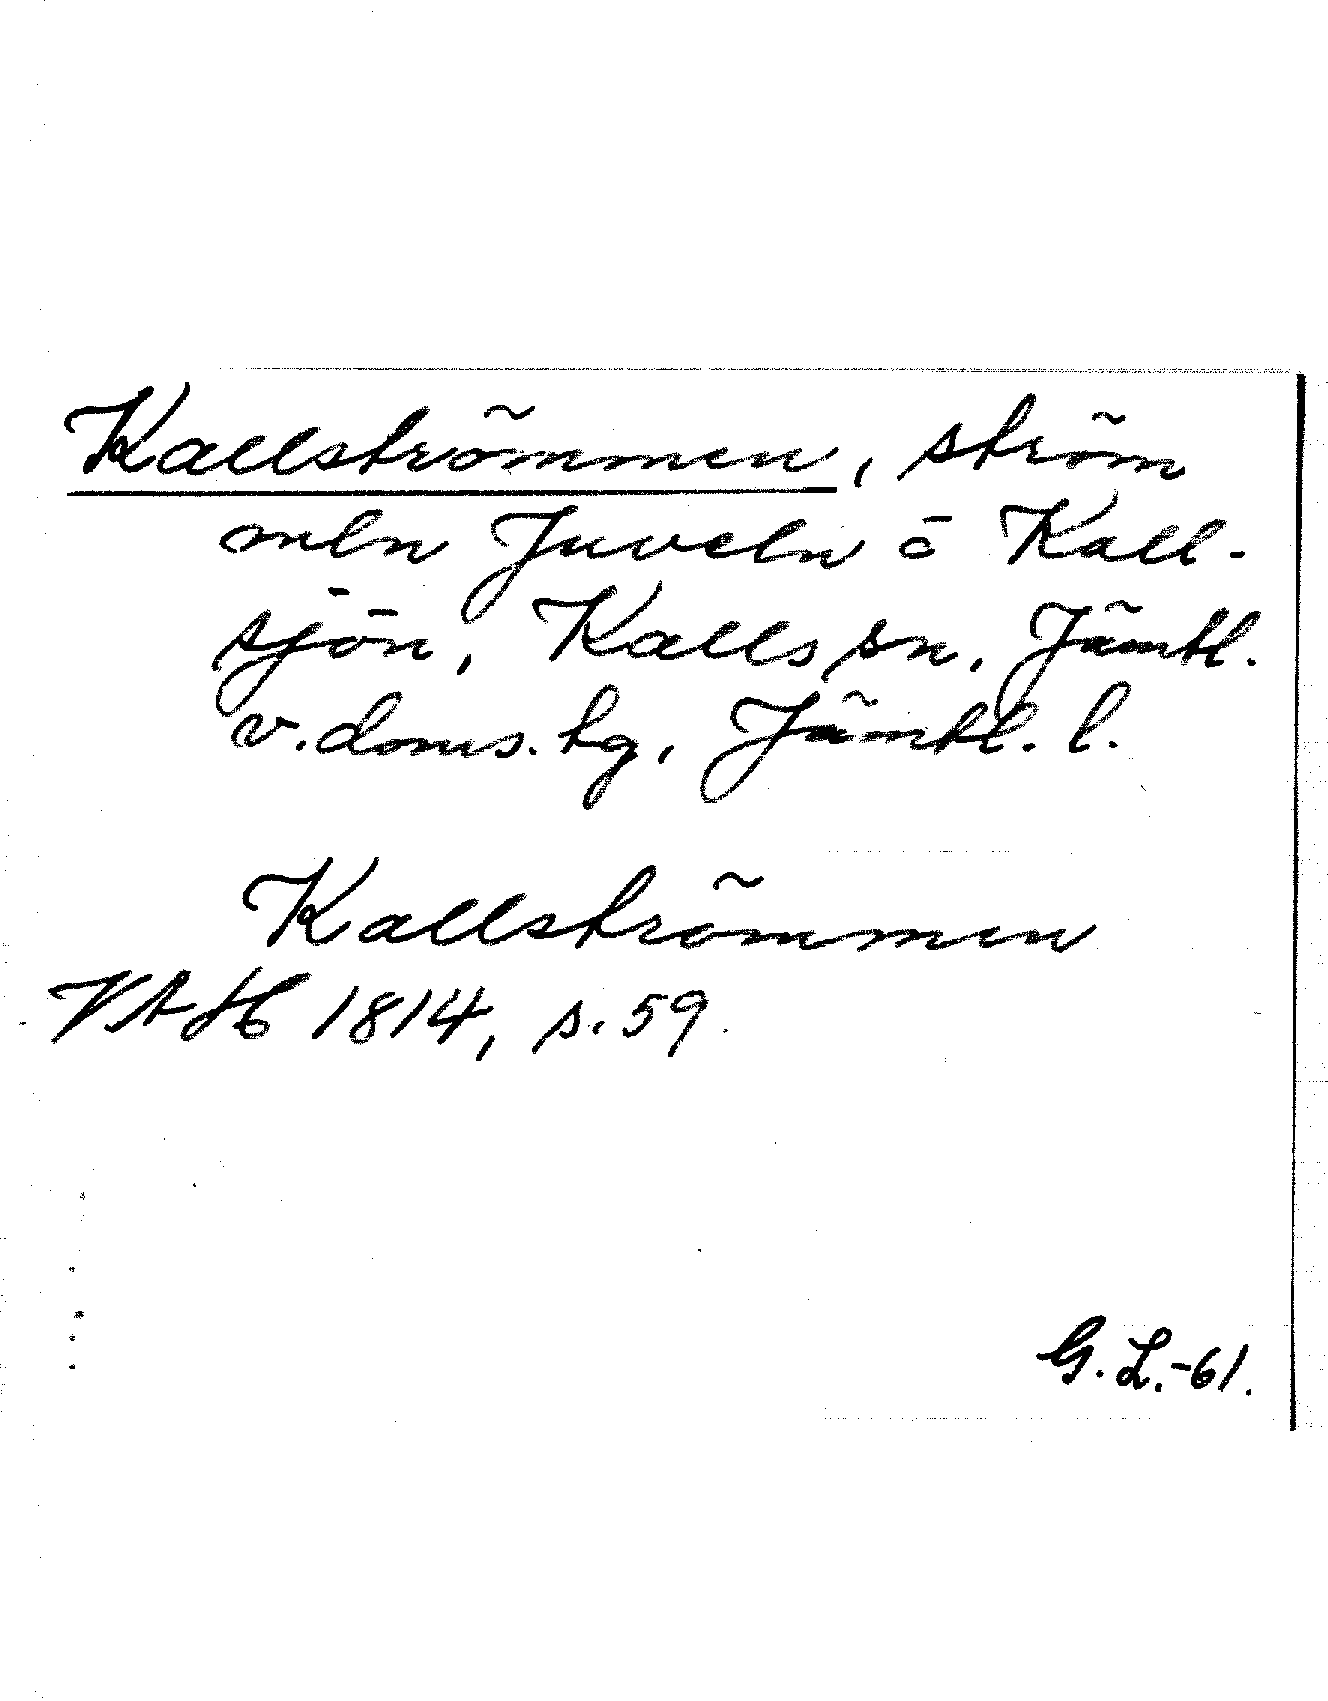 Kallströmmen, ström
mln Juveln o Kall-
sjön, Kalls sn, Jämtl.
v. doms. hg, Jämtl. l.
Kallströmmen
VAH 1814, s. 59.
G. L. -61.